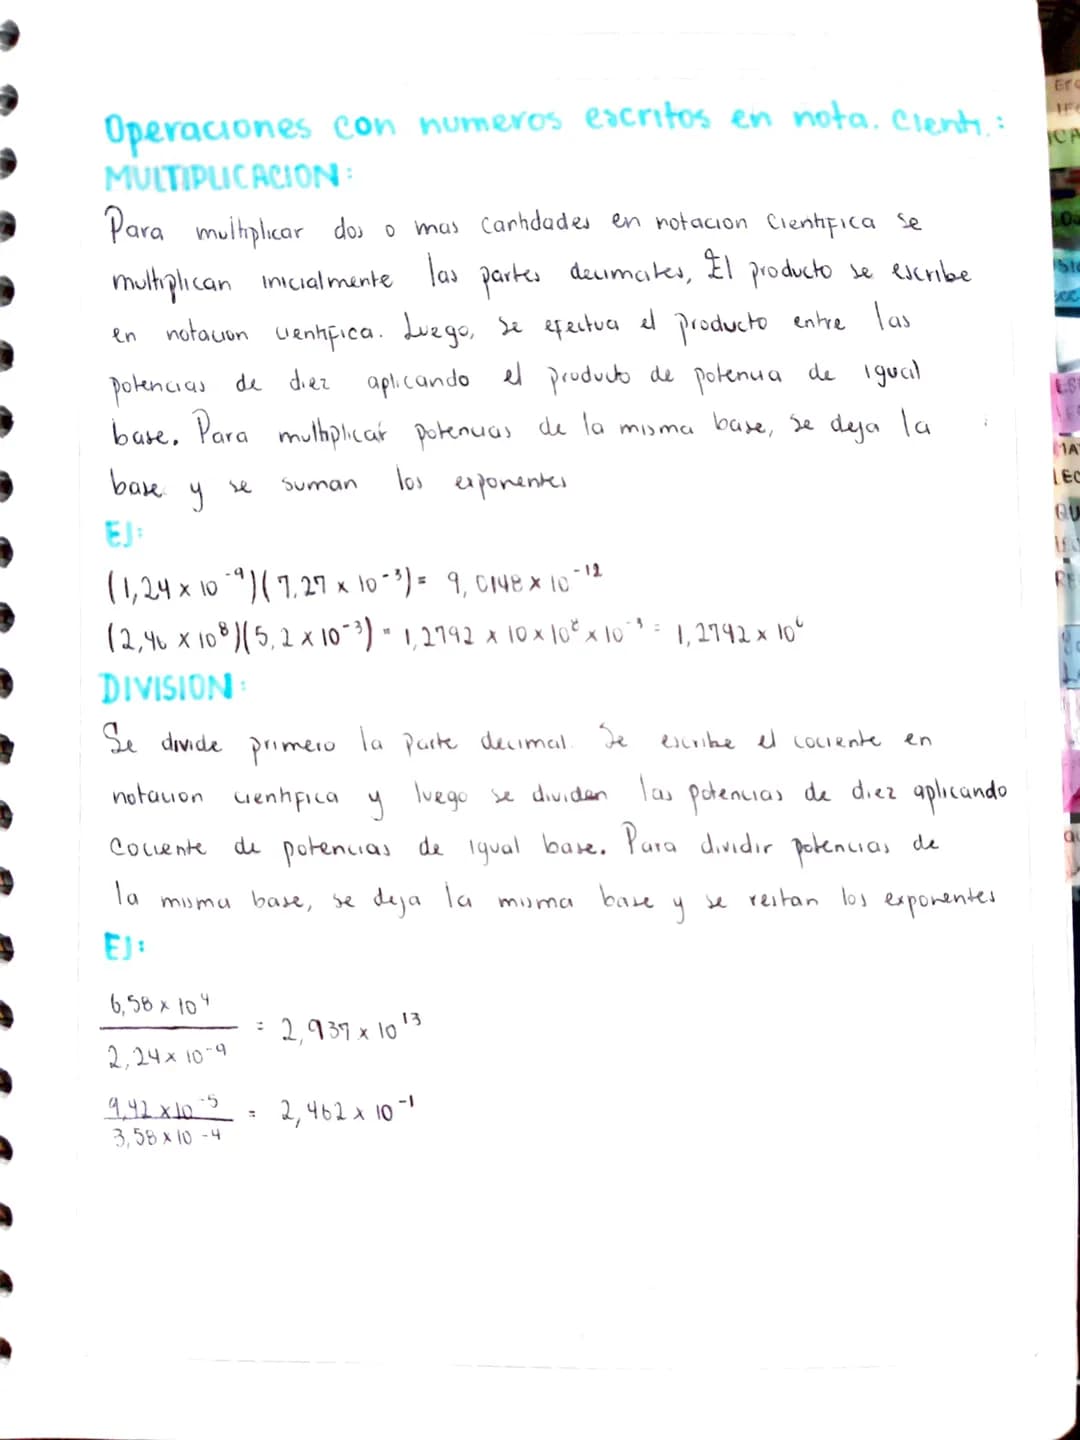 Operaciones con numeros escritos en nota. Cienti.:
MULTIPLICACION:
Para multiplicar dos o mas cantidades en notacion Cientifica se
multiplican inicialmente las partes decimales, El producto se escribe
en notacion cientifica. Luego, se efectua el producto entre las
potencias de diez aplicando el producto de potencia de igual
base. Para multiplicar potencias de la misma base, se deja la
base y se suman los exponentes
EJ:
(1,24 x 10⁻⁹)(7,27 x 10⁻³) = 9,0148 x 10⁻¹²
(2,46 x 10⁸)(5,2 x 10⁻³) = 1,2792 x 10 x 10⁸ x 10⁻³ = 1,2792 x 10⁶
DIVISION:
Se divide primero la parte decimal. Se escribe el cociente en
notacion cientifica y luego se dividen las potencias de diez aplicando
Cociente de potencias de igual base. Para dividir potencias de
la misma base, se deja la misma base y se restan los exponentes
EJ:
6,58 x 10⁴
= 2,937 x 10¹³
2,24 x 10⁻⁹
9,42 x 10⁻⁵
= 2,462 x 10⁻¹
3,58 x 10⁻⁴